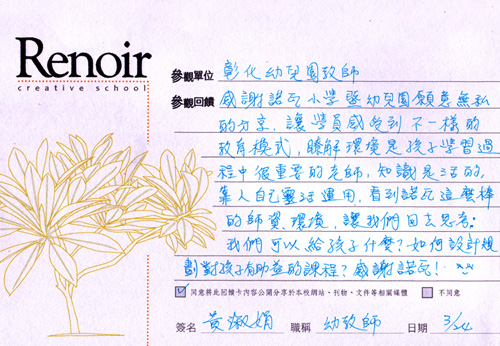 Renoir
creative school
參觀單位 彰化幼兒園教師
參觀回饋 感謝諾瓦小學暨幼兒園願意無私
的分享，讓學員感受到不一樣的
教育模式，瞭解環境是孩子學習過
程中很重要的老師，知識是活的，
靠人自己靈活運用，看到諾瓦這麼棒
的師資、環境，讓我們回去思考：
我們可以給孩子什麼？如何設計規
劃對孩子有助益的課程？感謝諾瓦！
同意將此回饋卡內容公開分享於本校網站、刊物、文件等相關媒體 不同意
簽名 黃淑娟 職稱 幼教師 日期 3/24